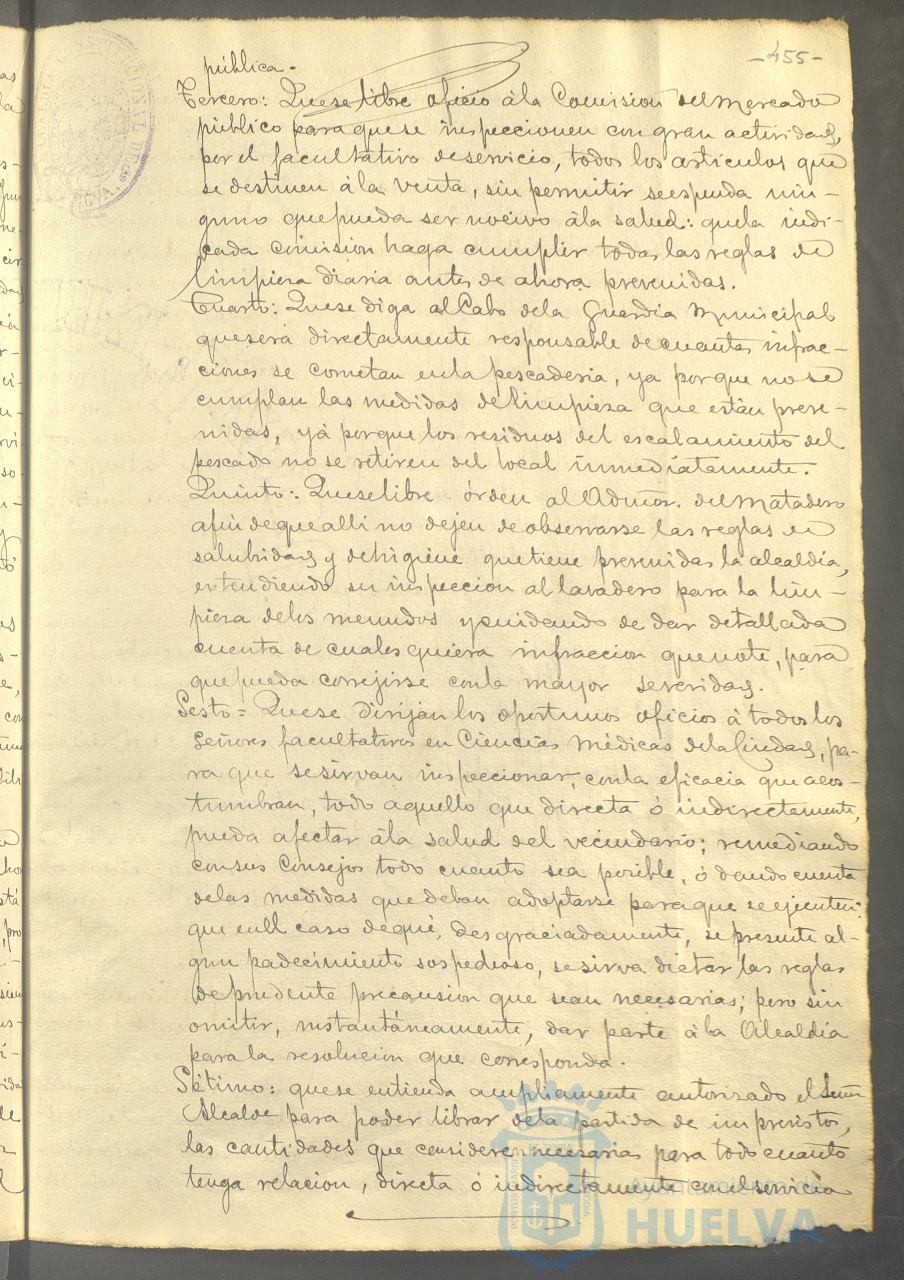 -455-
pública.
Tercero: Que se libre oficio á la Comisión del mercado
público para que se inspeccionen con gran actividad,
por el facultativo de servicio, todos los artículos que
se destinen á la venta, sin permitir se espenda nin-
guno que pueda ser nocivo á la salud: que la indi-
cada comision haga cumplir todas las reglas de
limpieza diaria antes de ahora prevenidas.
Cuarto: Que se diga al Cabo de la Guardia Municipal
que será directamente responsable de cuantas infrac-
ciones se cometan en la pescaderia, ya porque no se
cumplan las medidas de limpieza que están preve-
nidas, yá porque los residuos del escalamiento del
pescado no se retiren del local inmediatamente.
Quinto: Que se libre órden al Admor. del Matadero
afin de que alli no dejen de observarse las reglas de
salubridad y de higiene que tiene prevenidas la alcaldía,
extendiendo su inspeccion al lavadero para la lim-
pieza de los menudos y cuidando de dar detallada
cuenta de cuales quiera infraccion que note, para
que pueda correjirse con la mayor severidad.
Sesto = Que se dirijan los oportunos oficios á todos los
Señores facultativos en Ciencias Médicas de la Ciudad, pa-
ra que se sirvan inspeccionar, con la eficacia que acos-
tumbran, todo aquello que directa ó indirectamente,
pueda afectar á la salud del vecindario; remediando
con sus Consejos todo cuanto sea posible, ó dando cuenta
de las medidas que deban adoptarse para que se ejecuten:
que en el caso de qué, desgraciadamente, se presente al-
gun padecimiento sospechoso, se sirva dictar las reglas
de prudente precausion que sean necesarias; pero sin
omitir, instantáneamente, dar parte á la Alcaldía
para la resolucion que corresponda.
Sétimo: que se entienda ampliamente autorizado el Señor
Alcalde para poder librar de la partida de imprevistos,
las cantidades que consideren necesarias para todo cuanto
tenga relacion, directa ó indirectamente con el servicio
Ayuntamiento de
HUELVA